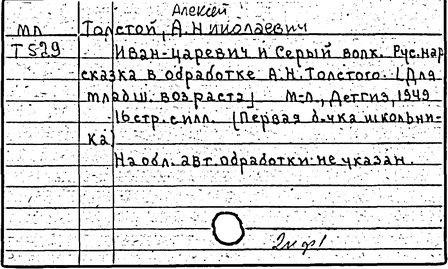 Алексей
мл Толстой, А. Николаевич
Т529 Иван-царевич и Серый волк. Рус. нар.
сказка в обработке А.Н. Толстого. [Для
младш. возраста] М-Л., Детгиз, 1949
16 стр. с илл. (Первая б-чка школьни-
ка)
На обл. авт. обработки не указан.